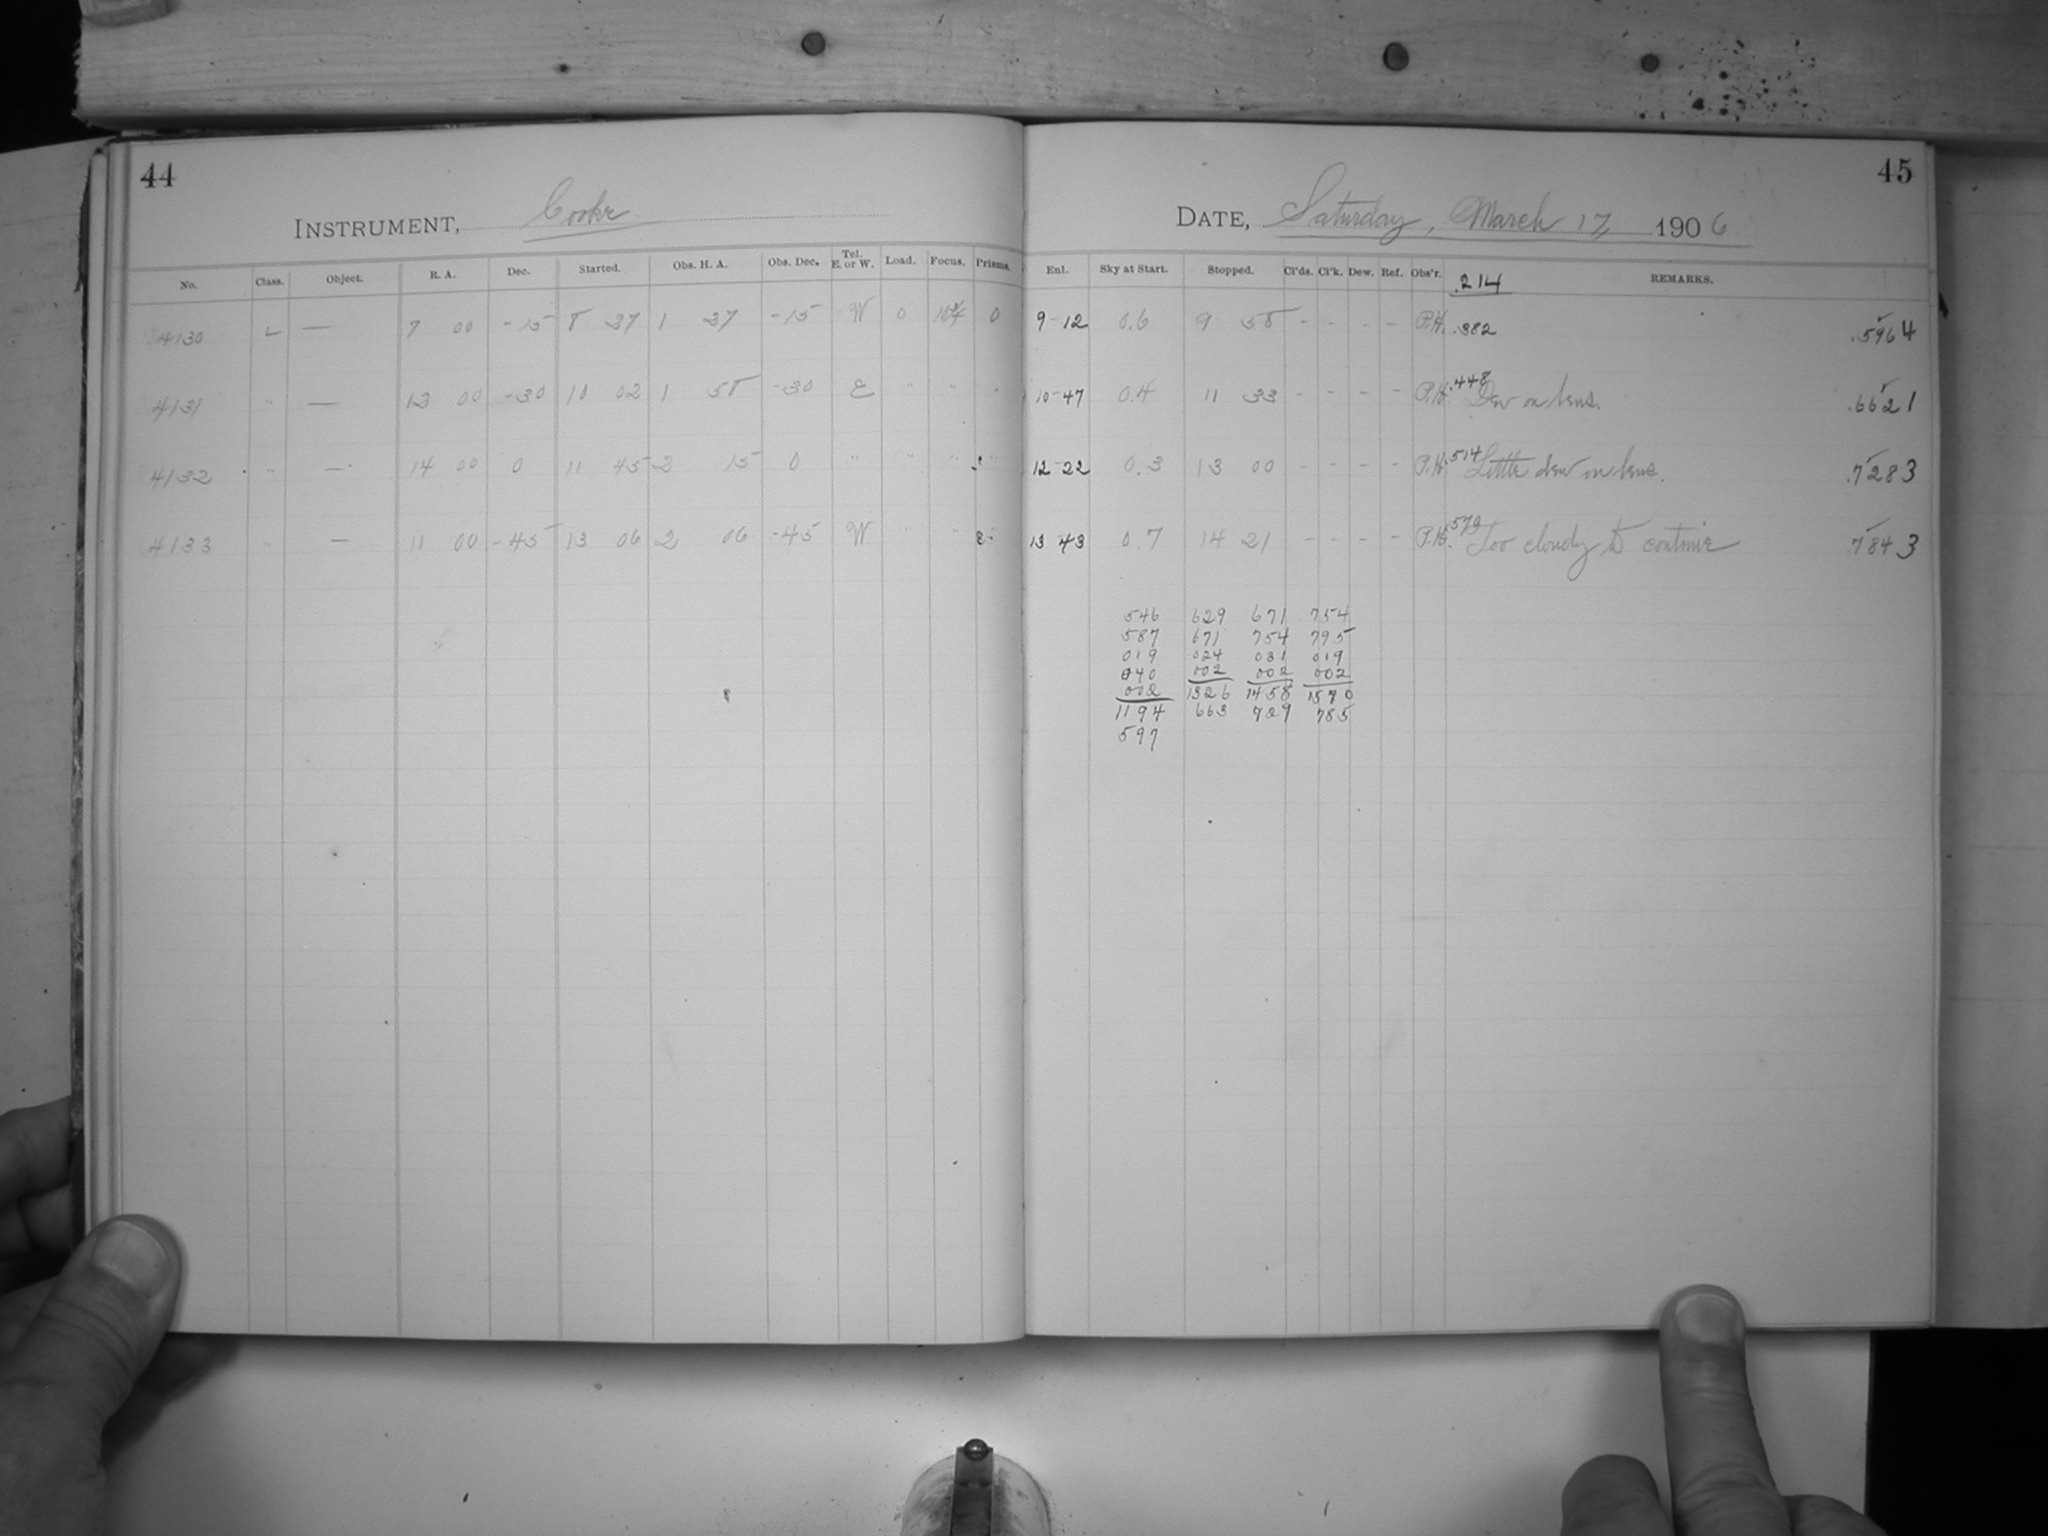 44
INSTRUMENT, Cooke
No. Class. Object. R. A. Dec. Started. Obs. H. A. Obs. Dec. Tel. E. or W. Load. Focus. Prisms.
4130 L — 7 00 -15 8 37 1 37 -15 W 0 0
4131 " — 13 00 -30 10 02 1 58 -30 E " " "
4132 " — 14 00 0 11 45 2 15 0 " " " "
4133 " — 11 00 -45 13 06 2 06 -45 W " "
45
DATE, Saturday, March 17, 1906
Enl. Sky at Start. Stopped. Cl'ds. Cl'k. Dew. Ref. Obs'r. .214 REMARKS.
9-12 0.6 9 58 - - - - P.H. .382 .5964
10-47 0.4 11 33 - - - - P.H. .448 Dew on lens. .6621
12-22 0.3 13 00 - - - - P.H. .514 Little dew on lens. .7283
13 43 0.7 14 21 - - - - P.H. .570 Too cloudy to continue .7843
546 629 671 754
587 671 754 795
019 024 031 019
040 002 002 002
002 1326 1458 1570
1194 663 729 785
597